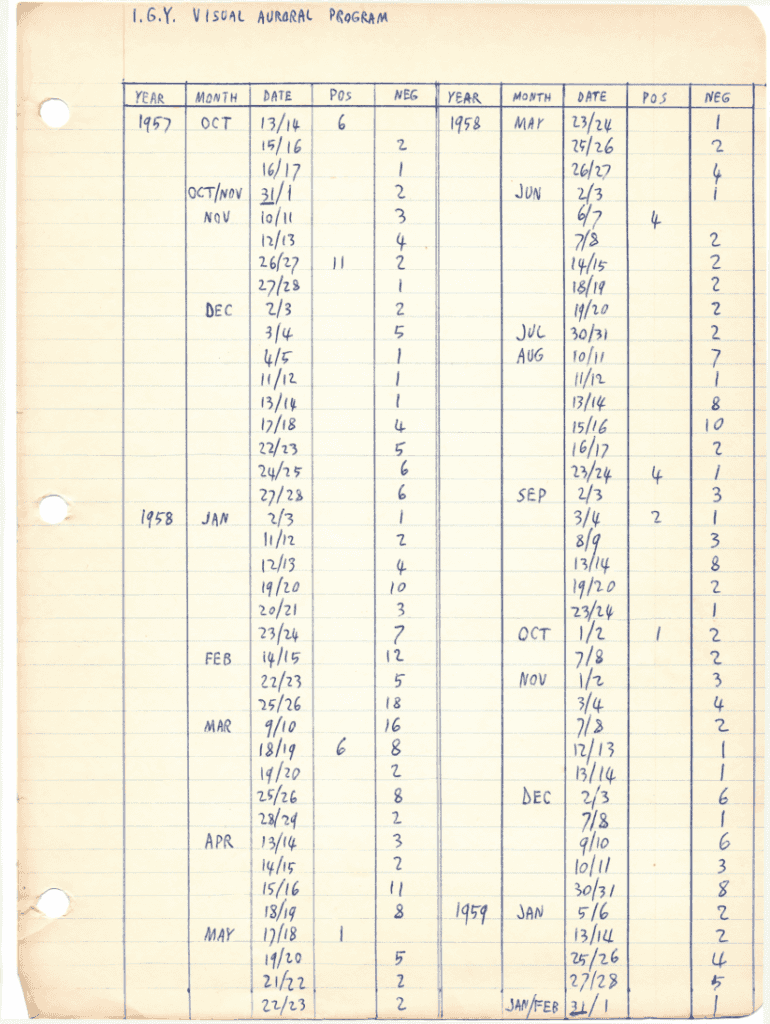 I.G.Y. VISUAL AURORAL PROGRAM
YEAR MONTH DATE POS NEG
1957 OCT 13/14 6
15/16 2
16/17 1
OCT/NOV 31/1 2
NOV 10/11 3
12/13 4
26/27 11 2
27/28 1
DEC 2/3 2
3/4 5
4/5 1
11/12 1
13/14 1
17/18 4
22/23 5
24/25 6
27/28 6
1958 JAN 2/3 1
11/12 2
12/13 4
19/20 10
20/21 3
23/24 7
FEB 14/15 12
22/23 5
25/26 18
MAR 9/10 16
18/19 6 8
19/20 2
25/26 8
28/29 2
APR 13/14 3
14/15 2
15/16 11
18/19 8
MAY 17/18 1
19/20 5
21/22 2
22/23 2
YEAR MONTH DATE POS NEG
1958 MAY 23/24 1
25/26 2
26/27 4
JUN 2/3 1
6/7 4
7/8 2
14/15 2
18/19 2
19/20 2
JUL 30/31 2
AUG 10/11 7
11/12 1
13/14 8
15/16 10
16/17 2
23/24 4 1
SEP 2/3 3
3/4 2 1
8/9 3
13/14 8
19/20 2
23/24 1
OCT 1/2 1 2
7/8 2
NOV 1/2 3
3/4 4
7/8 2
12/13 1
13/14 1
DEC 2/3 6
7/8 1
9/10 6
10/11 3
30/31 8
1959 JAN 5/6 2
13/14 2
25/26 4
27/28 5
JAN/FEB 31/1 1